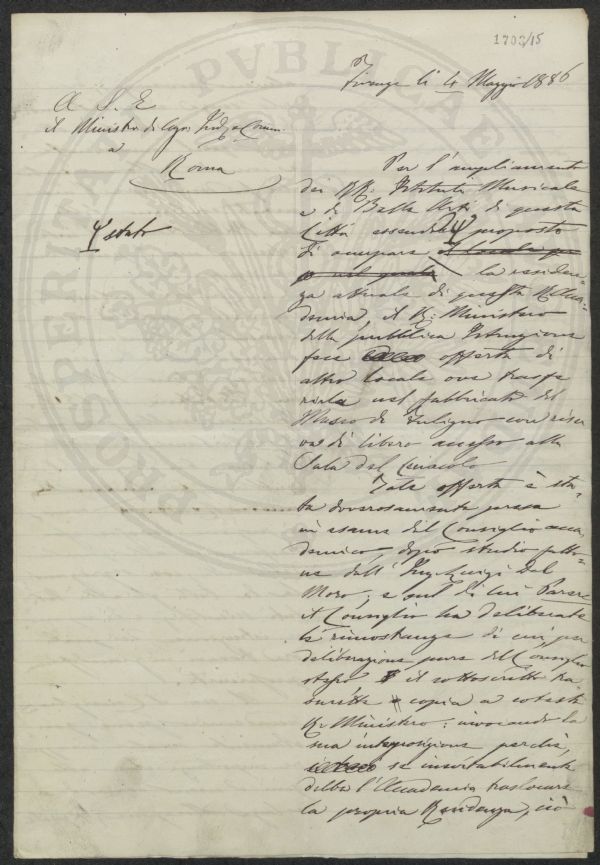 1703/15
Firenze li 4 Maggio 1886
A S. E.
il Ministro di Agr. Ind. e Comm.
a
Roma
Per l'ampliamento
dei RR. Istituti Musicale
e di Belle Arti di questa
Città essendosi proposto
di occupare il locale
la residen
za attuale di questa R. Acca-
demia il R. Ministero
della pubblica Istruzione
fece offerta di
altro locale ove trasfe
rirla nel fabbricato del
Museo di Fuligno con riser
va di libero accesso alla
Sala del Cenacolo
Tale offerta è sta-
ta doverosamente presa
in esame dal Consiglio acca
demico, dopo studio fatto-
ne dall' Ing. Luigi Del
Moro; e sul di lui Parere
il Consiglio ha deliberate
le rimostranze di cui per
deliberazione pure del Consiglio
stesso il sottoscritto ha
copia a cotesto
R. Ministero; invocando la
sua interposizione perché,
se inevitabilmente
debba l'Accademia traslocare
la propria Residenza, ciò